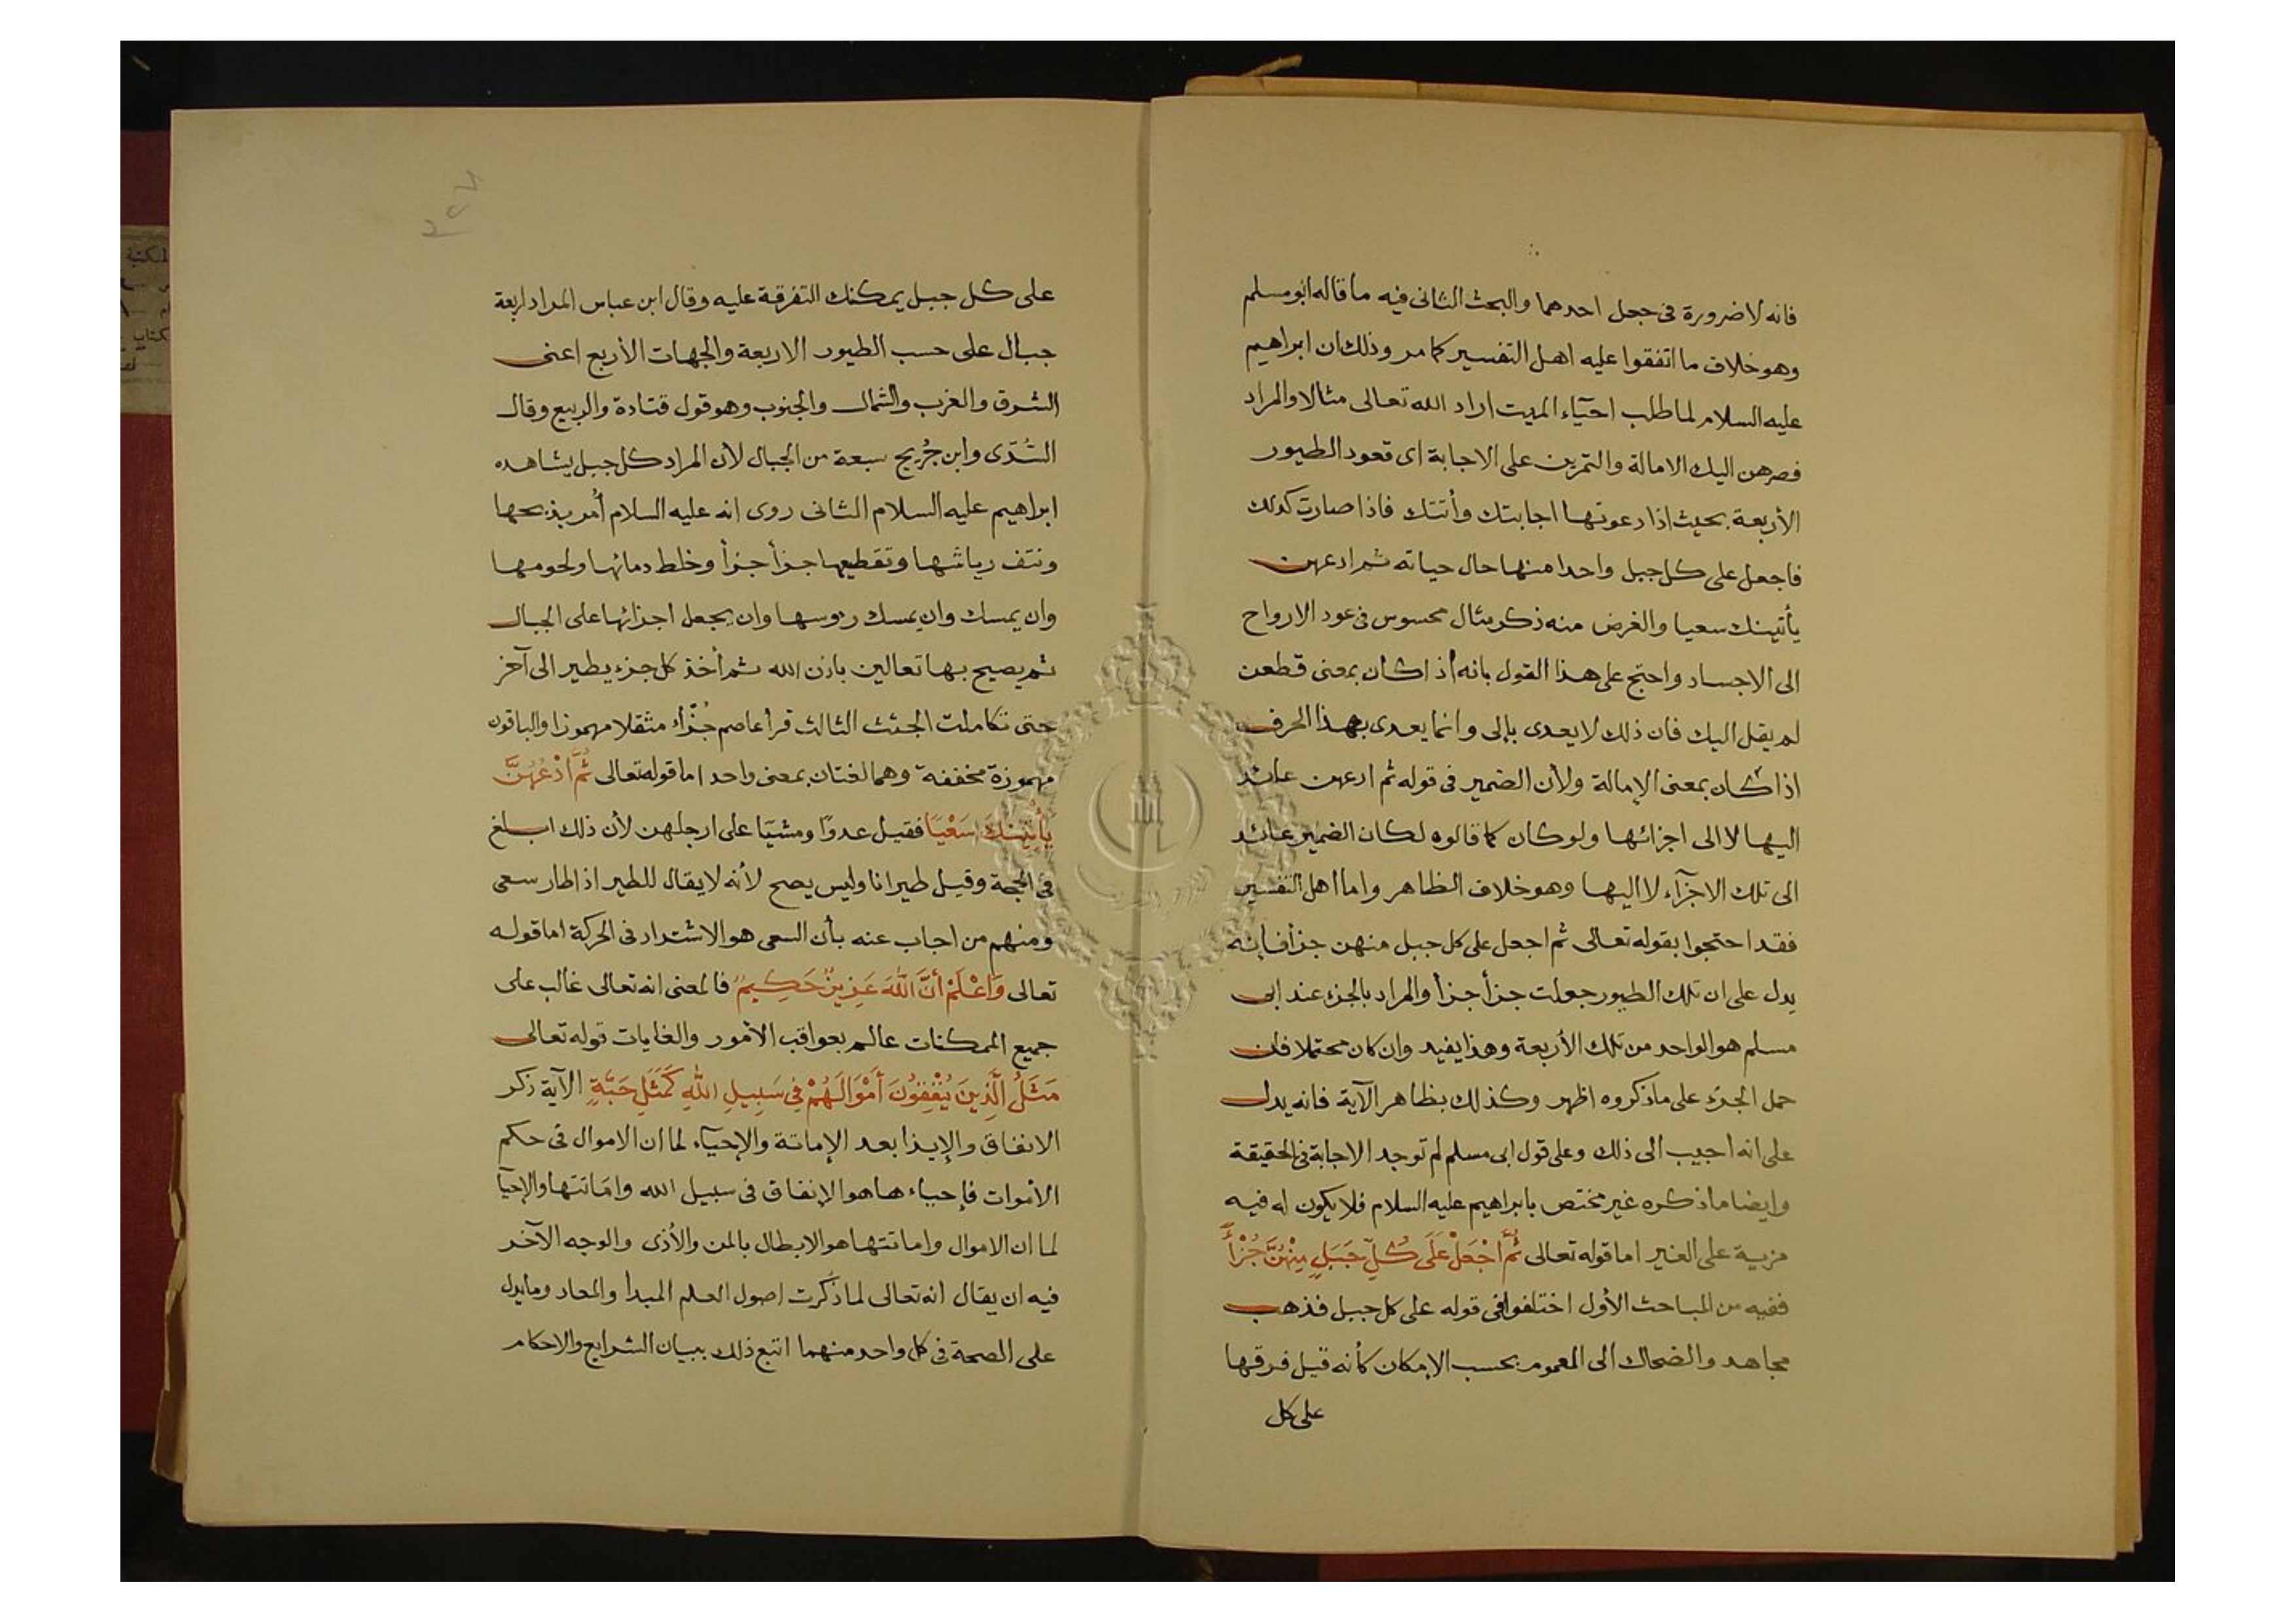 فانه لا ضرورة فى جعل احدهما والبحث الثانى فيه ما قاله ابو مسلم
وهو خلاف ما اتفقوا عليه اهل التفسير كما مر وذلك ان ابراهيم
عليه السلام لما طلب احيآء الميت اراد الله تعالى مثالا والمراد
فصرهن اليك الامالة والتمرين على الاجابة اى قعود الطيور
الأربعة بحيث اذا دعوتها اجابتك وأتتك فاذا صارت كذلك
فاجعل على كل جبل واحدا منها حال حياته ثم ادعهن
يأتينك سعيا والغرض منه ذكر مثال محسوس فى عود الارواح
الى الاجساد واحتج على هذا القول بانه أذا كان بمعنى قطعن
لم يقل اليك فان ذلك لا يعدى بإلى وانما يعدى بهذا الحرف
اذا كان بمعنى الإمالة ولأن الضمير فى قوله ثم ادعهن عائد
اليها لا الى اجزائها ولو كان كما قالوه لكان الضمير عائد
الى تلك الاجزآء لا اليها وهو خلاف الظاهر واما اهل التفسير
فقد احتجوا بقوله تعالى ثم اجعل على كل جبل منهن جزأ فإنه
يدل على ان تلك الطيور جعلت جزأ جزأ والمراد بالجزء عند ابى
مسلم هو الواحد من تلك الأربعة وهذا يفيد وان كان محتملا فان
حمل الجزء على ما ذكروه اظهر وكذلك بظاهر الآية فانه يدل
على انه اجيب الى ذلك وعلى قول ابى مسلم لم توجد الاجابة فى الحقيقة
وايضا ما ذكره غير مختص بابراهيم عليه السلام فلا يكون له فيه
مزية على الغير اما قوله تعالى ثُمَّ اجْعَلْ عَلَى كُلِّ جَبَلٍ مِنْهُنَّ جُزْأً
ففيه من المباحث الأول اختلفوا فى قوله على كل جبل فذهب
مجاهد والضحاك الى العموم بحسب الإمكان كأنه قيل فرقها
على كل
على كل جبل يمكنك التفرقة عليه وقال ابن عباس المراد اربعة
جبال على حسب الطيور الاربعة والجهات الأربع اعنى
الشرق والغرب والشمال والجنوب وهو قول قتادة والربيع وقال
السُّدّى وابن جُريج سبعة من الجبال لأن المراد كل جبل يشاهده
ابراهيم عليه السلام الثانى روى انه عليه السلام أُمر بذبحها
ونتف رياشها وتقطيعها جزأ جزأ وخلط دمائها ولحومها
وان يمسك وان يمسك روسها وان يجعل اجزائها على الجبال
ثم يصيح بها تعالين باذن الله ثم أخذ كل جزء يطير الى آخر
حتى تكاملت الجثث الثالث قرأ عاصم جُزُّأ مثقلا مهموزا والباقون
مهموزة مخففة وهما لغتان بمعنى واحد اما قوله تعالى ثُمَّ ادْعُهُنَّ
يَأْتِينَكَ سَعْيًا فقيل عدوًا ومشيًا على ارجلهن لأن ذلك ابلغ
فى الحجة وقيل طيرانا وليس يصح لأنه لا يقال للطير اذا طار سعى
ومنهم من اجاب عنه بأن السعى هو الاشتداد فى الحركة اما قوله
تعالى وَاعْلَمْ أَنَّ اللهَ عَزِيزٌ حَكِيمٌ فالمعنى انه تعالى غالب على
جميع الممكنات عالم بعواقب الأمور والغايات قوله تعالى
مَثَلُ الَّذِينَ يُنْفِقُونَ أَمْوَالَهُمْ فِى سَبِيلِ اللهِ كَمَثَلِ حَبَّةٍ الآية ذكر
الانفاق والإيذا بعد الإماتة والإحيآء لما ان الاموال فى حكم
الأموات فإحياءها هو الإنفاق فى سبيل الله واماتتها والإحيآ
لما ان الاموال واماتتها هو الابطال بالمن والأذى والوجه الآخر
فيه ان يقال انه تعالى لما ذكرت اصول العلم المبدأ والمعاد وما يدل
على الصحة فى كل واحد منهما اتبع ذلك ببيان الشرايع والاحكام